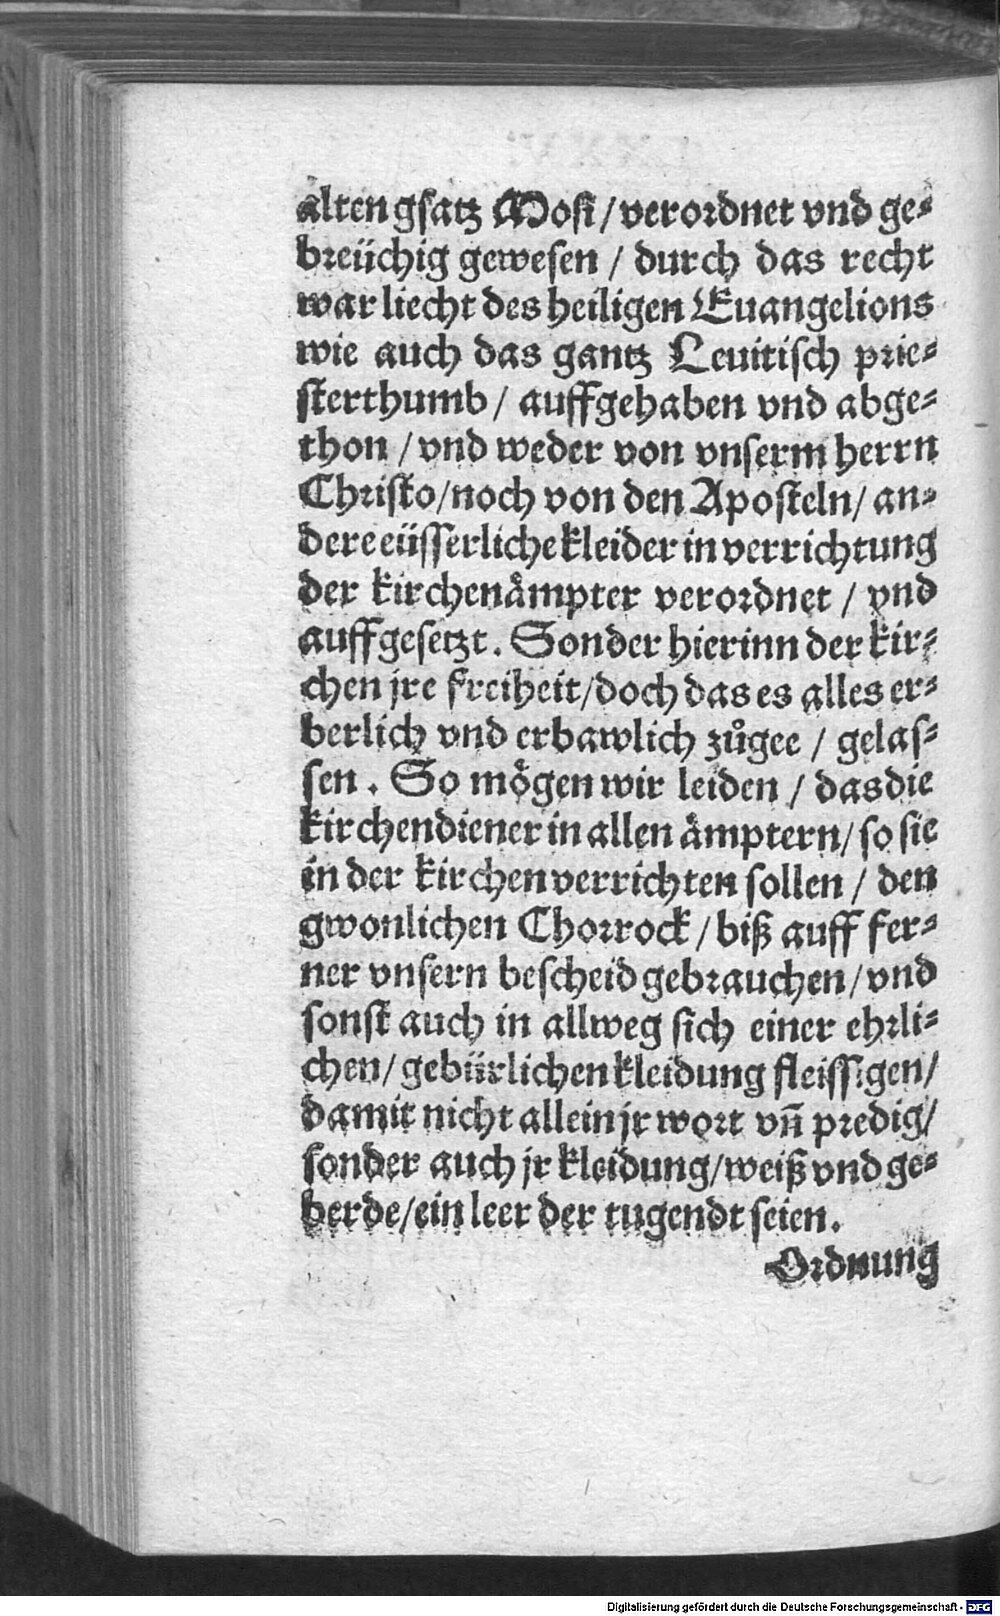 alten gsatz Mosi / verordnet vnd ge⸗
breüchig gewesen / durch das recht
war liecht des heiligen Euangelions
wie auch das gantz Leuitisch prie⸗
sterthumb / auffgehaben vnd abge⸗
thon / vnd weder von vnserm herrn
Christo / noch von den Aposteln / an⸗
dere eüsserliche kleider in verrichtung
der kirchenaͤmpter verordnet / vnd
auffgesetzt. Sonder hierinn der kir⸗
chen jre freiheit / doch das es alles er⸗
berlich vnd erbawlich zůgee / gelas⸗
sen. So moͤgen wir leiden / das die
kirchendiener in allen aͤmptern / so sie
in der kirchen verrichten sollen / den
gwonlichen Chorrock / biß auff fer⸗
ner vnsern bescheid gebrauchen / vnd
sonst auch in allweg sich einer ehrli⸗
chen / gebürlichen kleidung fleissigen /
damit nicht allein jr wort vñ predig /
sonder auch jr kleidung / weiß vnd ge⸗
berde / ein leer der tugendt seien.
Ordnung
Digitalisierung gefördert durch die Deutsche Forschungsgemeinschaft - DFG